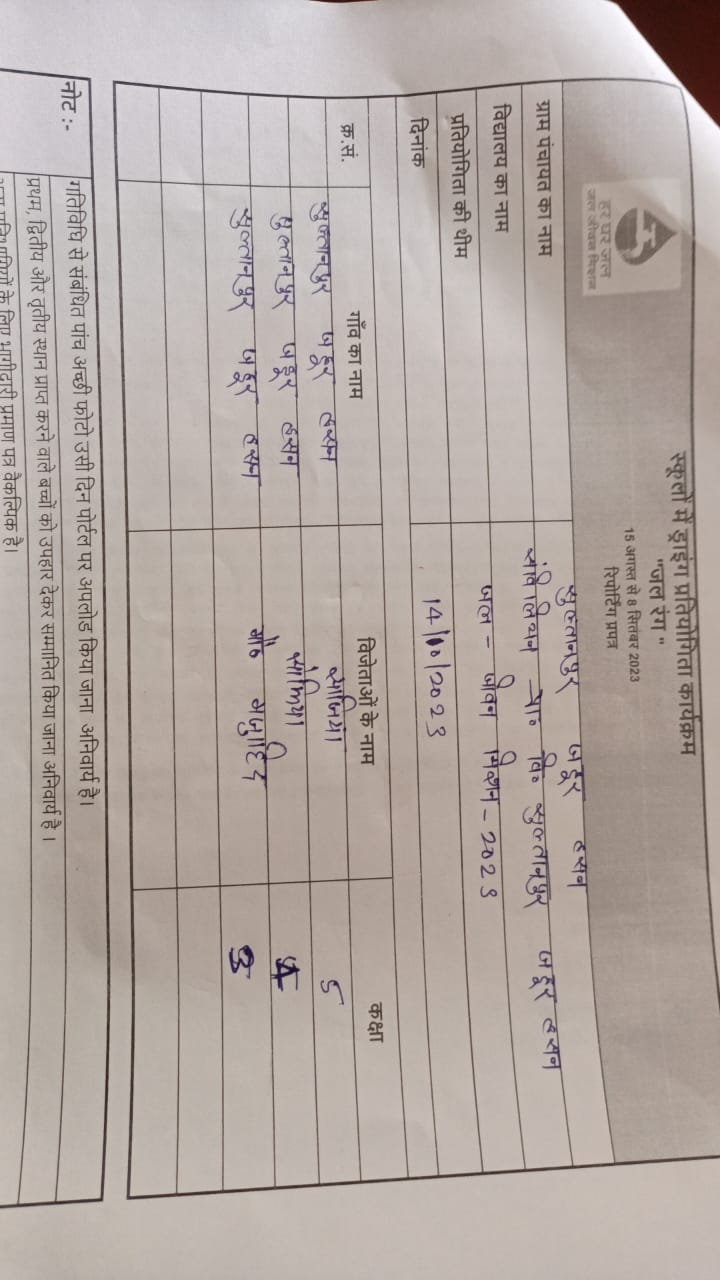 हर घर जल
जल जीवन मिशन
स्कूलों में ड्राइंग प्रतियोगिता कार्यक्रम
"जल रंग "
15 अगस्त से 8 सितंबर 2023
रिपोर्टिंग प्रपत्र
ग्राम पंचायत का नाम सुल्तानपुर जहूर हसन
विद्यालय का नाम संविलियन उ० वि० सुल्तानपुर जहूर हसन
प्रतियोगिता की थीम जल - जीवन मिशन - 2023
दिनांक 14/10/2023
क्र.सं. गाँव का नाम विजेताओं के नाम कक्षा
सुल्तानपुर जहूर हसन 5
सुल्तानपुर जहूर हसन 4
सुल्तानपुर जहूर हसन मौ० 3
नोट :- गतिविधि से संबंधित पांच अच्छी फोटो उसी दिन पोर्टल पर अपलोड किया जाना अनिवार्य है।
प्रथम, द्वितीय और तृतीय स्थान प्राप्त करने वाले बच्चों को उपहार देकर सम्मानित किया जाना अनिवार्य है ।
के लिए भागीदारी प्रमाण पत्र वैकल्पिक है।